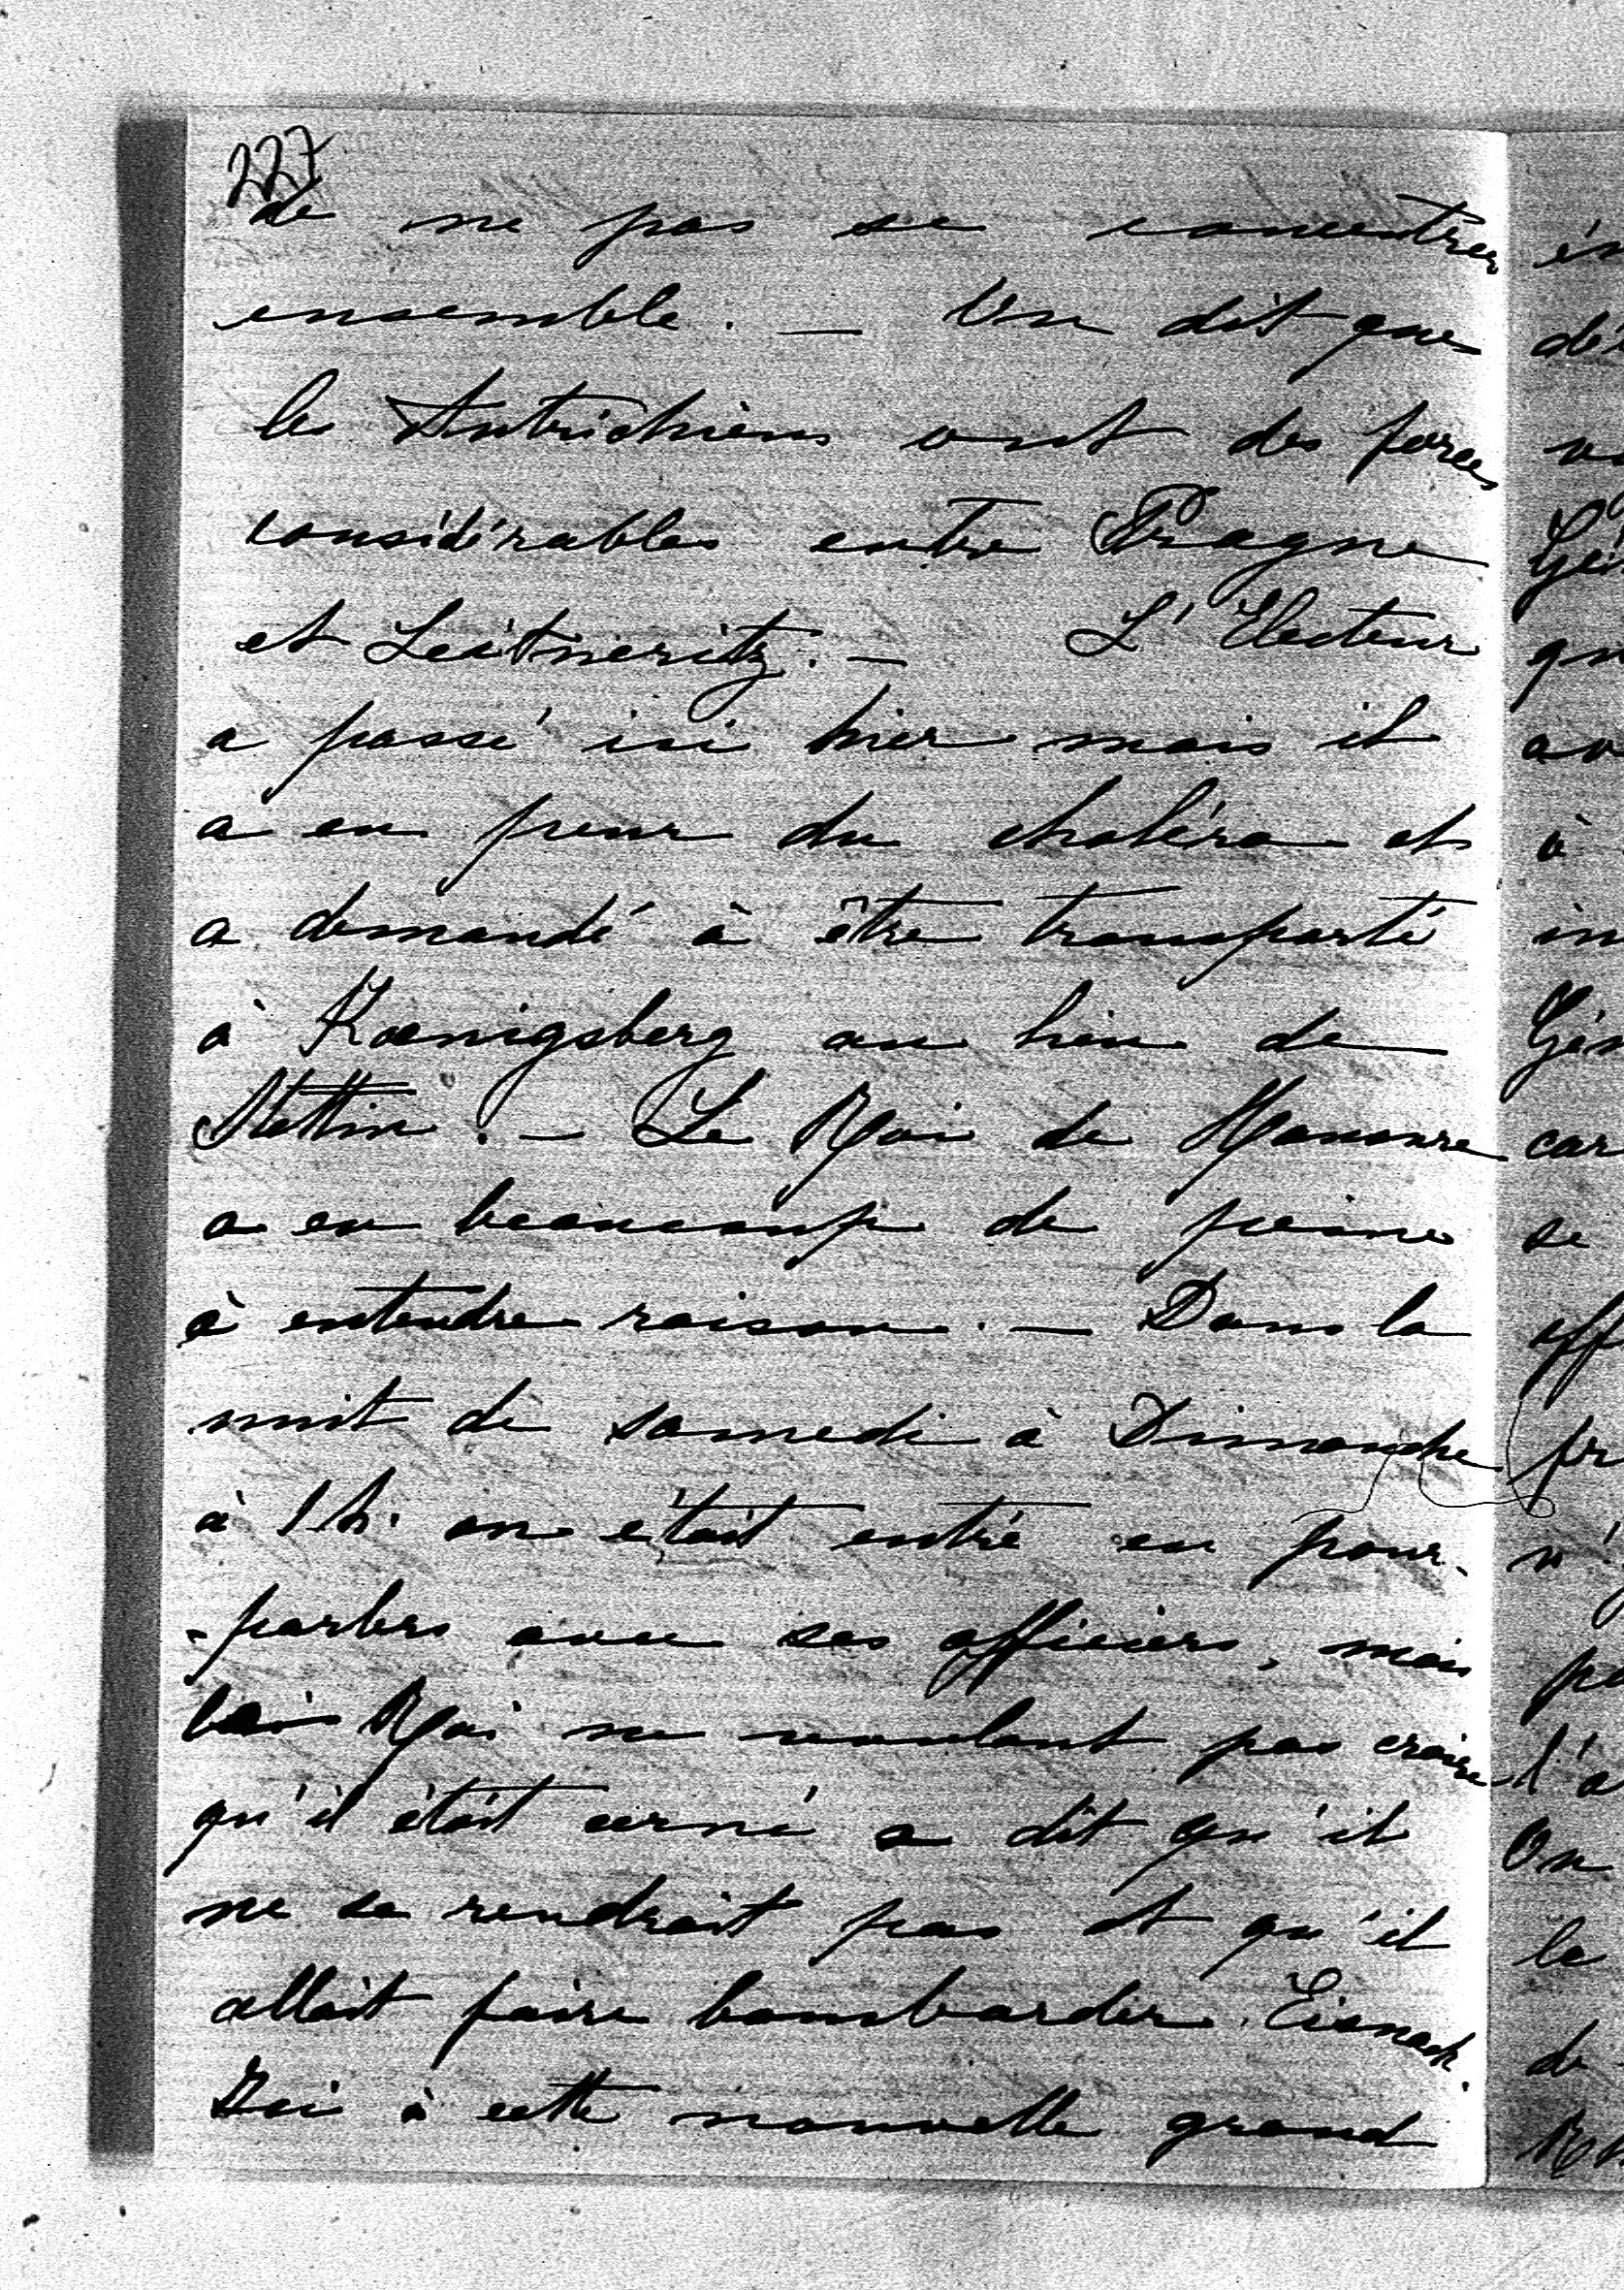 227
de ne pas se concentrer
ensemble. — On dit que
les Autrichiens ont des forces
considérables entre Prague
et Leitmeritz. — L'Electeur
a passé ici hier mais il
a eu peur du choléra et
a demandé à être transporté
à Kœnigsberg au lieu de
Stettin. — Le Roi de Hanovre
a eu beaucoup de peine
à entendre raison. — Dans la
nuit de samedi à Dimanche
à 1 h. on était entré en pour-
-parlers avec ses officiers, mais
Roi ne voulant pas croire
qu'il était cerné a dit qu'il
ne se rendrait pas et qu'il
allait faire bombarder Eisenach.
Ici à cette nouvelle grand